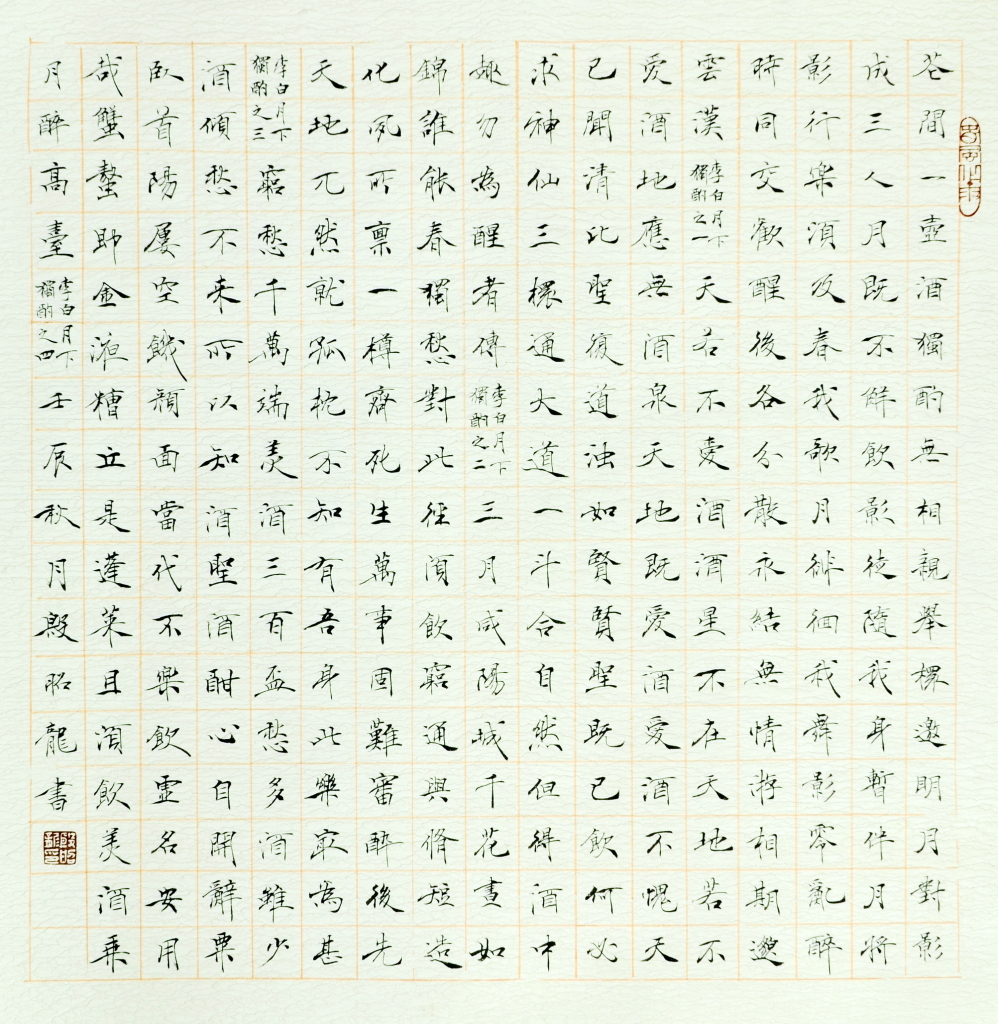 花間一壺酒獨酌無相親舉杯邀明月對影
成三人月既不解飲影徒隨我身暫伴月將
影行樂須及春我歌月徘徊我舞影零亂醉
時同交歡醒後各分散永結無情游相期邈
雲漢 李白月下獨酌之一 天若不愛酒酒星不在天地若不
愛酒地應無酒泉天地既愛酒愛酒不愧天
已聞清比聖復道濁如賢賢聖既已飲何必
求神仙三杯通大道一斗合自然但得酒中
趣勿為醒者傳 李白月下獨酌之二 三月咸陽城千花晝如
錦誰能春獨愁對此徑須飲窮通與脩短造
化夙所稟一樽齊死生萬事固難審醉後先
天地兀然就孤枕不知有吾身此樂最為甚
李白月下獨酌之三 窮愁千萬端美酒三百盃愁多酒雖少
酒傾愁不來所以知酒聖酒酣心自開辭粟
臥首陽屢空饑顏回當代不樂飲虛名安用
哉蟹螯即金液糟丘是蓬萊且須飲美酒乘
月醉高臺 李白月下獨酌之四 壬辰秋月殷昭龍書